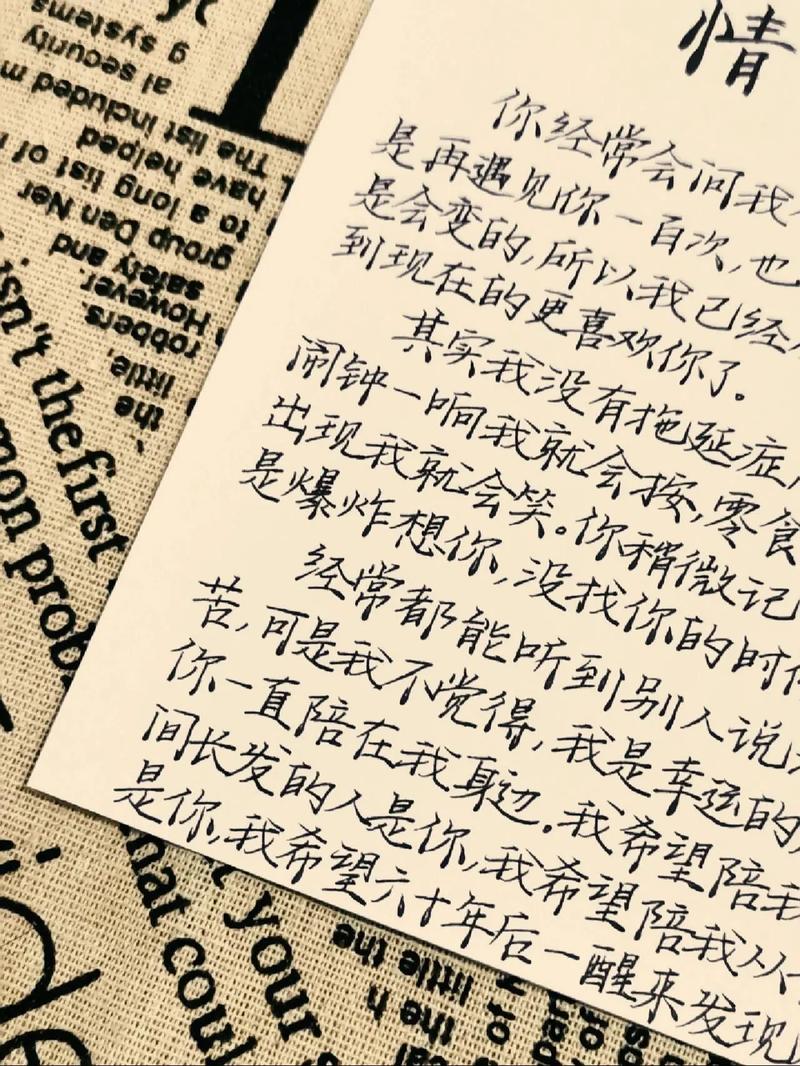 情
你经常会问我
是再遇见你一百次,也
是会变的,所以我已经
到现在的更喜欢你了。
其实我没有拖延症,
闹钟一响我就会按,零食
出现我就会笑。你稍微记
是爆炸想你,没找你的时
经常都能听到别人说
苦,可是我不觉得,我是幸运的
你一直陪在我身边。我希望陪我
间长发的人是你,我希望陪我从
是你,我希望六十年后一醒来发现
g systems
al security
The list included m
have helped
to a long list of
group Den Ner
safety and
However
robbers
little,
the
isn't the first
mon prob
hat coul
your
little the
the h